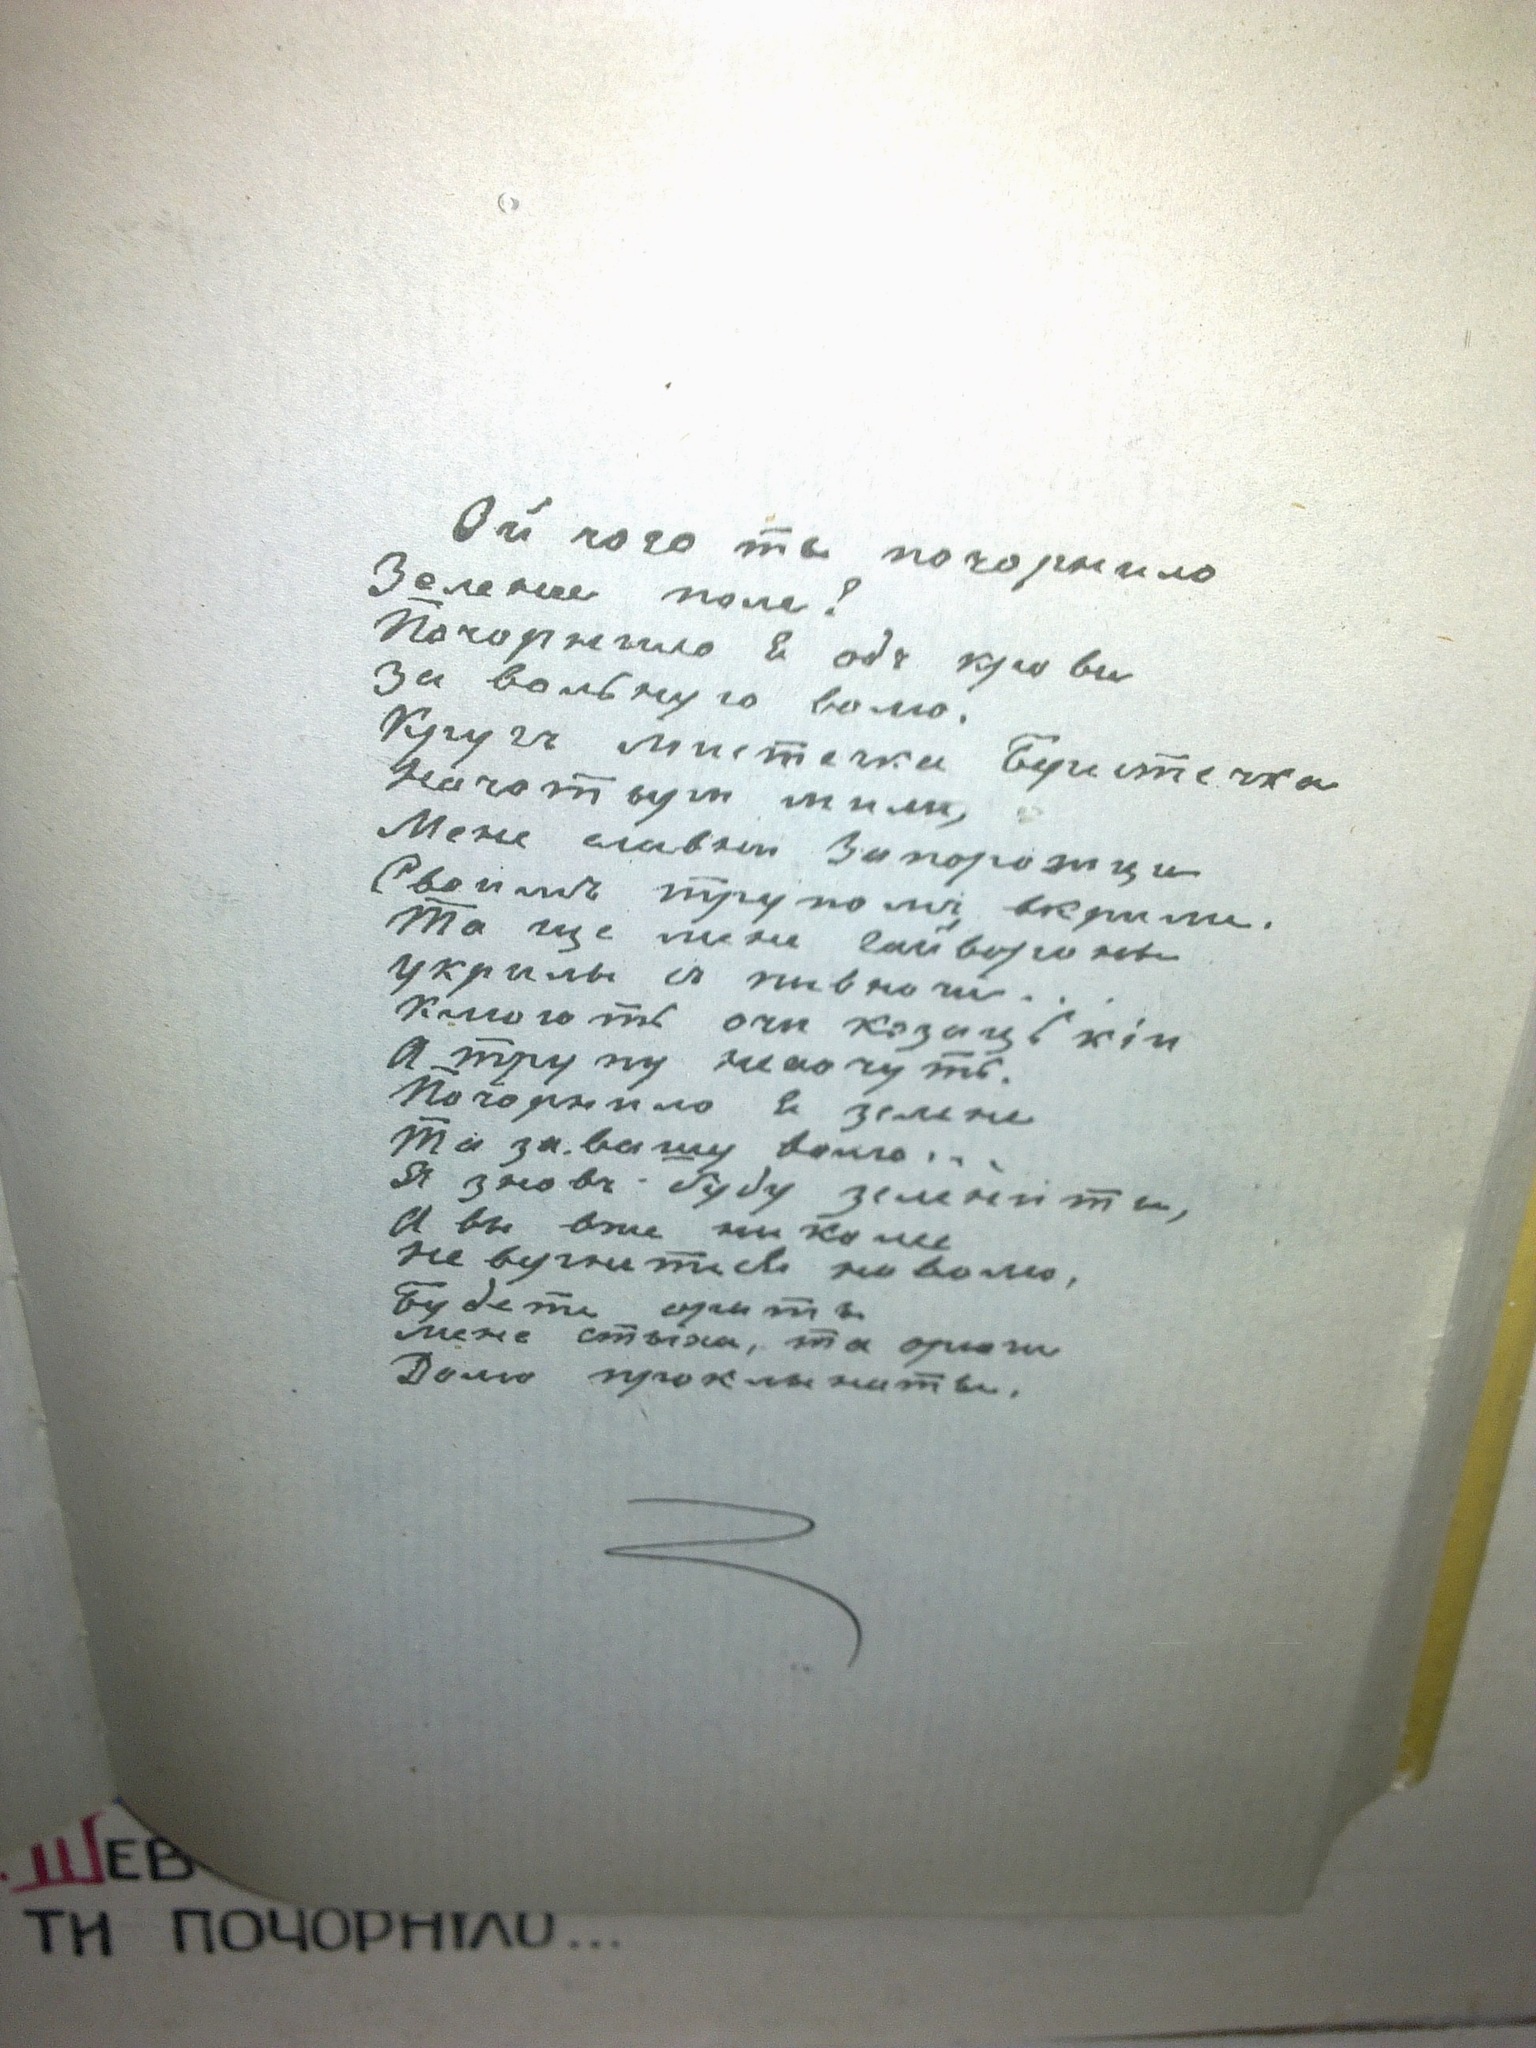 Ой чого ты почорнило
Зелене поле?
Почорнило я одъ крови
За вольную волю.
Кругъ мистечка Берестечка
На чотыри мили,
Мене славни Запорожци
Своимъ трупомъ вкрили.
Та ще мене гайвороны
укрилы съ пивночи...
Клюють очи козацькіи
А трупу нехочуть.
Почорнило я зелене
Та за вашу волю...
Я знову буду зеленіти,
А вы вже николи
не вернитесь на волю,
Будете орать
мене стыха, та орючи
Долю проклинаты.
. ШЕВ
ТИ ПОЧОРНІЛО...